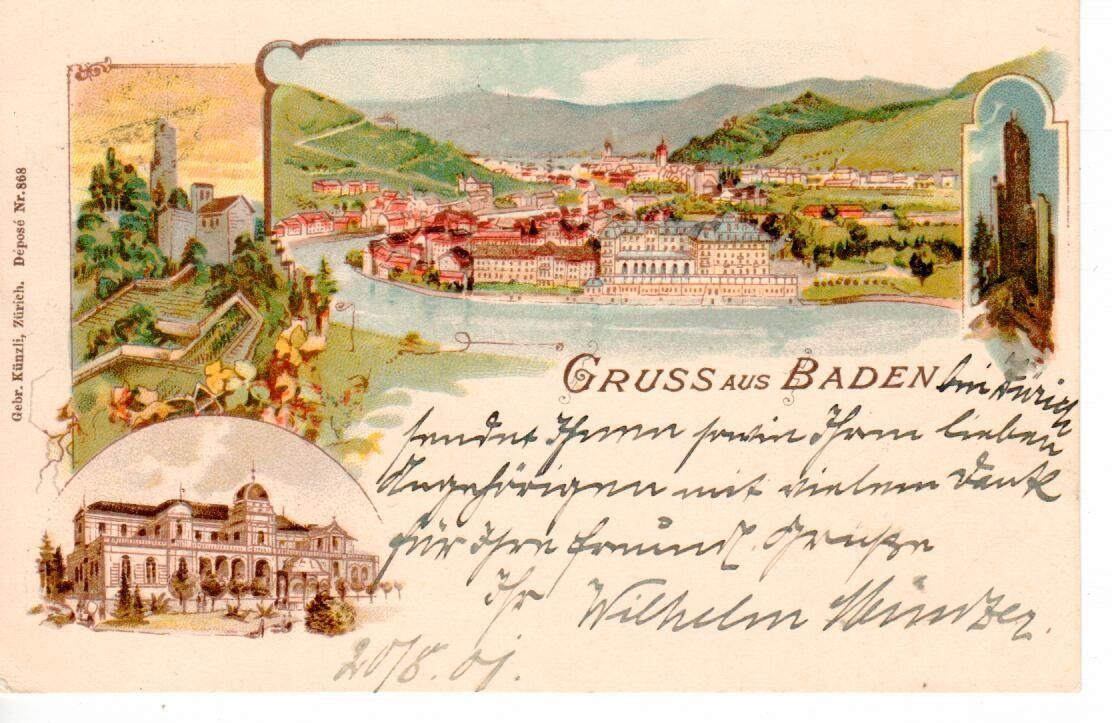 Gebr. Künzli, Zürich. Déposé Nr. 868
GRUSS AUS BADEN bei Zürich
sendet Ihnen sowie Ihren lieben
Angehörigen mit vielem Dank
für Ihre freundl. Grüße
Ihr Wilhelm
20/8. 01.